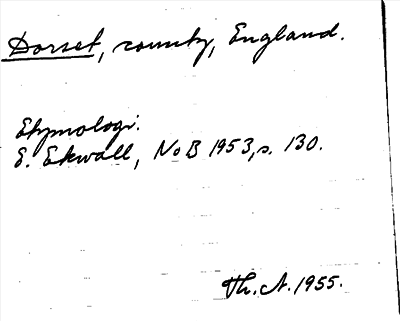 Dorset, county, England.
Etymologi.
E. Ekwall, NoB 1953, s. 130.
Th. A. 1955.